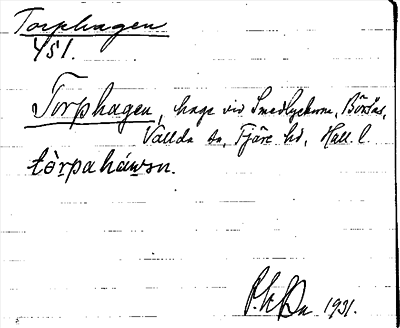 Torphagen
451.
Torphagen, hage vid Smedlyckorna, Börsås,
Vallda sn, Fjäre hd, Hall. l.
tòrpaháwən.
1931.